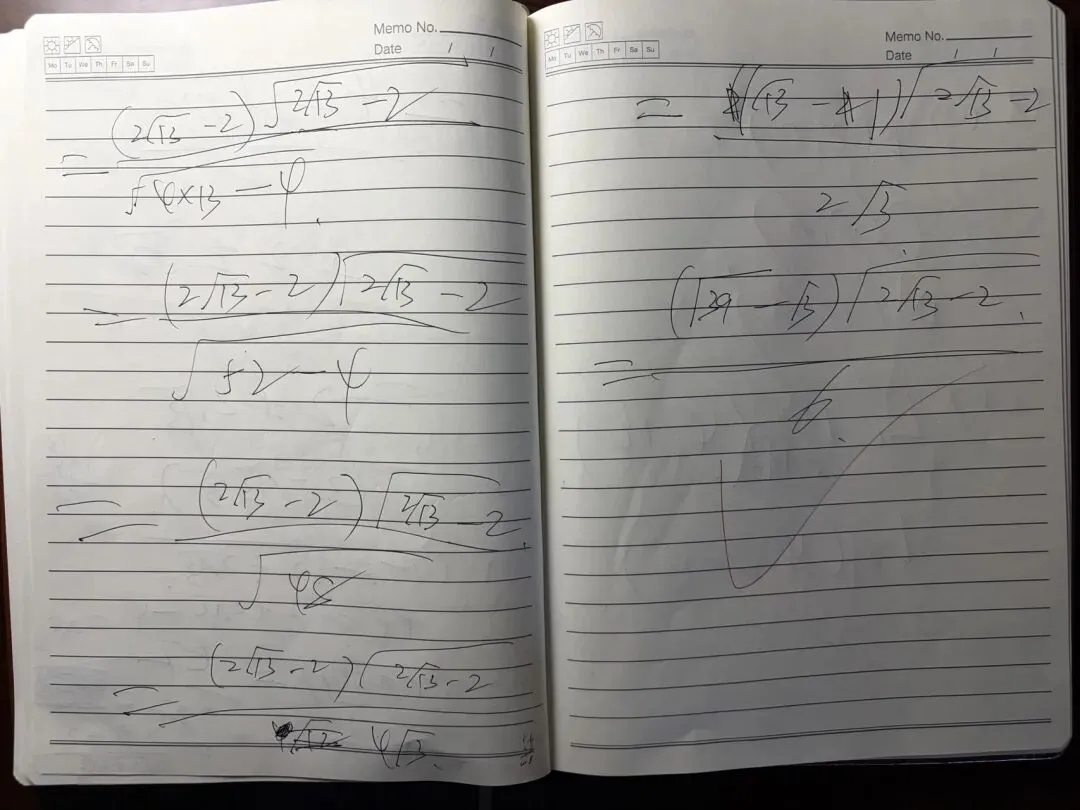 Memo No.
Date
Mo Tu We Th Fr Sa Su
(2√13 - 2)√(2√13 - 2)
= √(4×13 - 4)
(2√13 - 2)√(2√13 - 2)
= √(52 - 4)
(2√13 - 2)√(2√13 - 2)
= √48
(2√13 - 2)√(2√13 - 2)
= 4√3
Memo No.
Date
Mo Tu We Th Fr Sa Su
= (√13 - 1)√(2√13 - 2)
2√3
(√39 - √3)√(2√13 - 2)
= 6